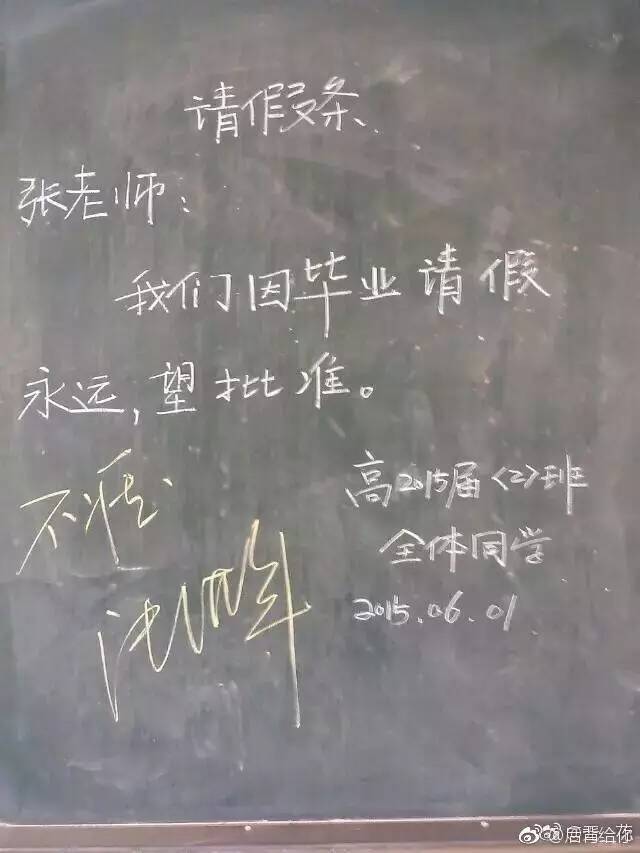 请假条
张老师：
我们因毕业请假
永远，望批准。
高2015届<2>班
全体同学
2015.06.01
不准